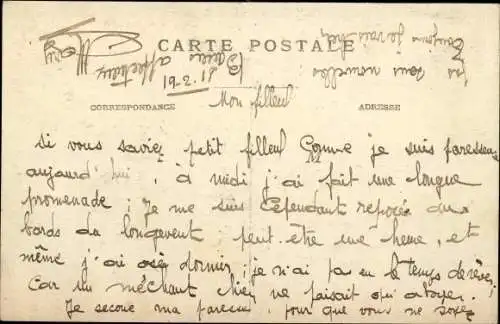 CARTE POSTALE
CORRESPONDANCE
ADRESSE
Mon filleul
Si vous saviez petit filleul Comme je suis paresseuse
aujourd'hui, à midi j'ai fait une longue
promenade ; Je me suis Cependant reposée du
bords du peut-etre une heure, et
même j'ai osé dormir ; je n'ai pas eu le temps de rêver,
Car un méchant chien ne faisait qu'aboyer.
Je secoue ma paresse, pour que vous ne soyez
pas sans nouvelles
Toujours je vais
Baisers affectueux
Mary